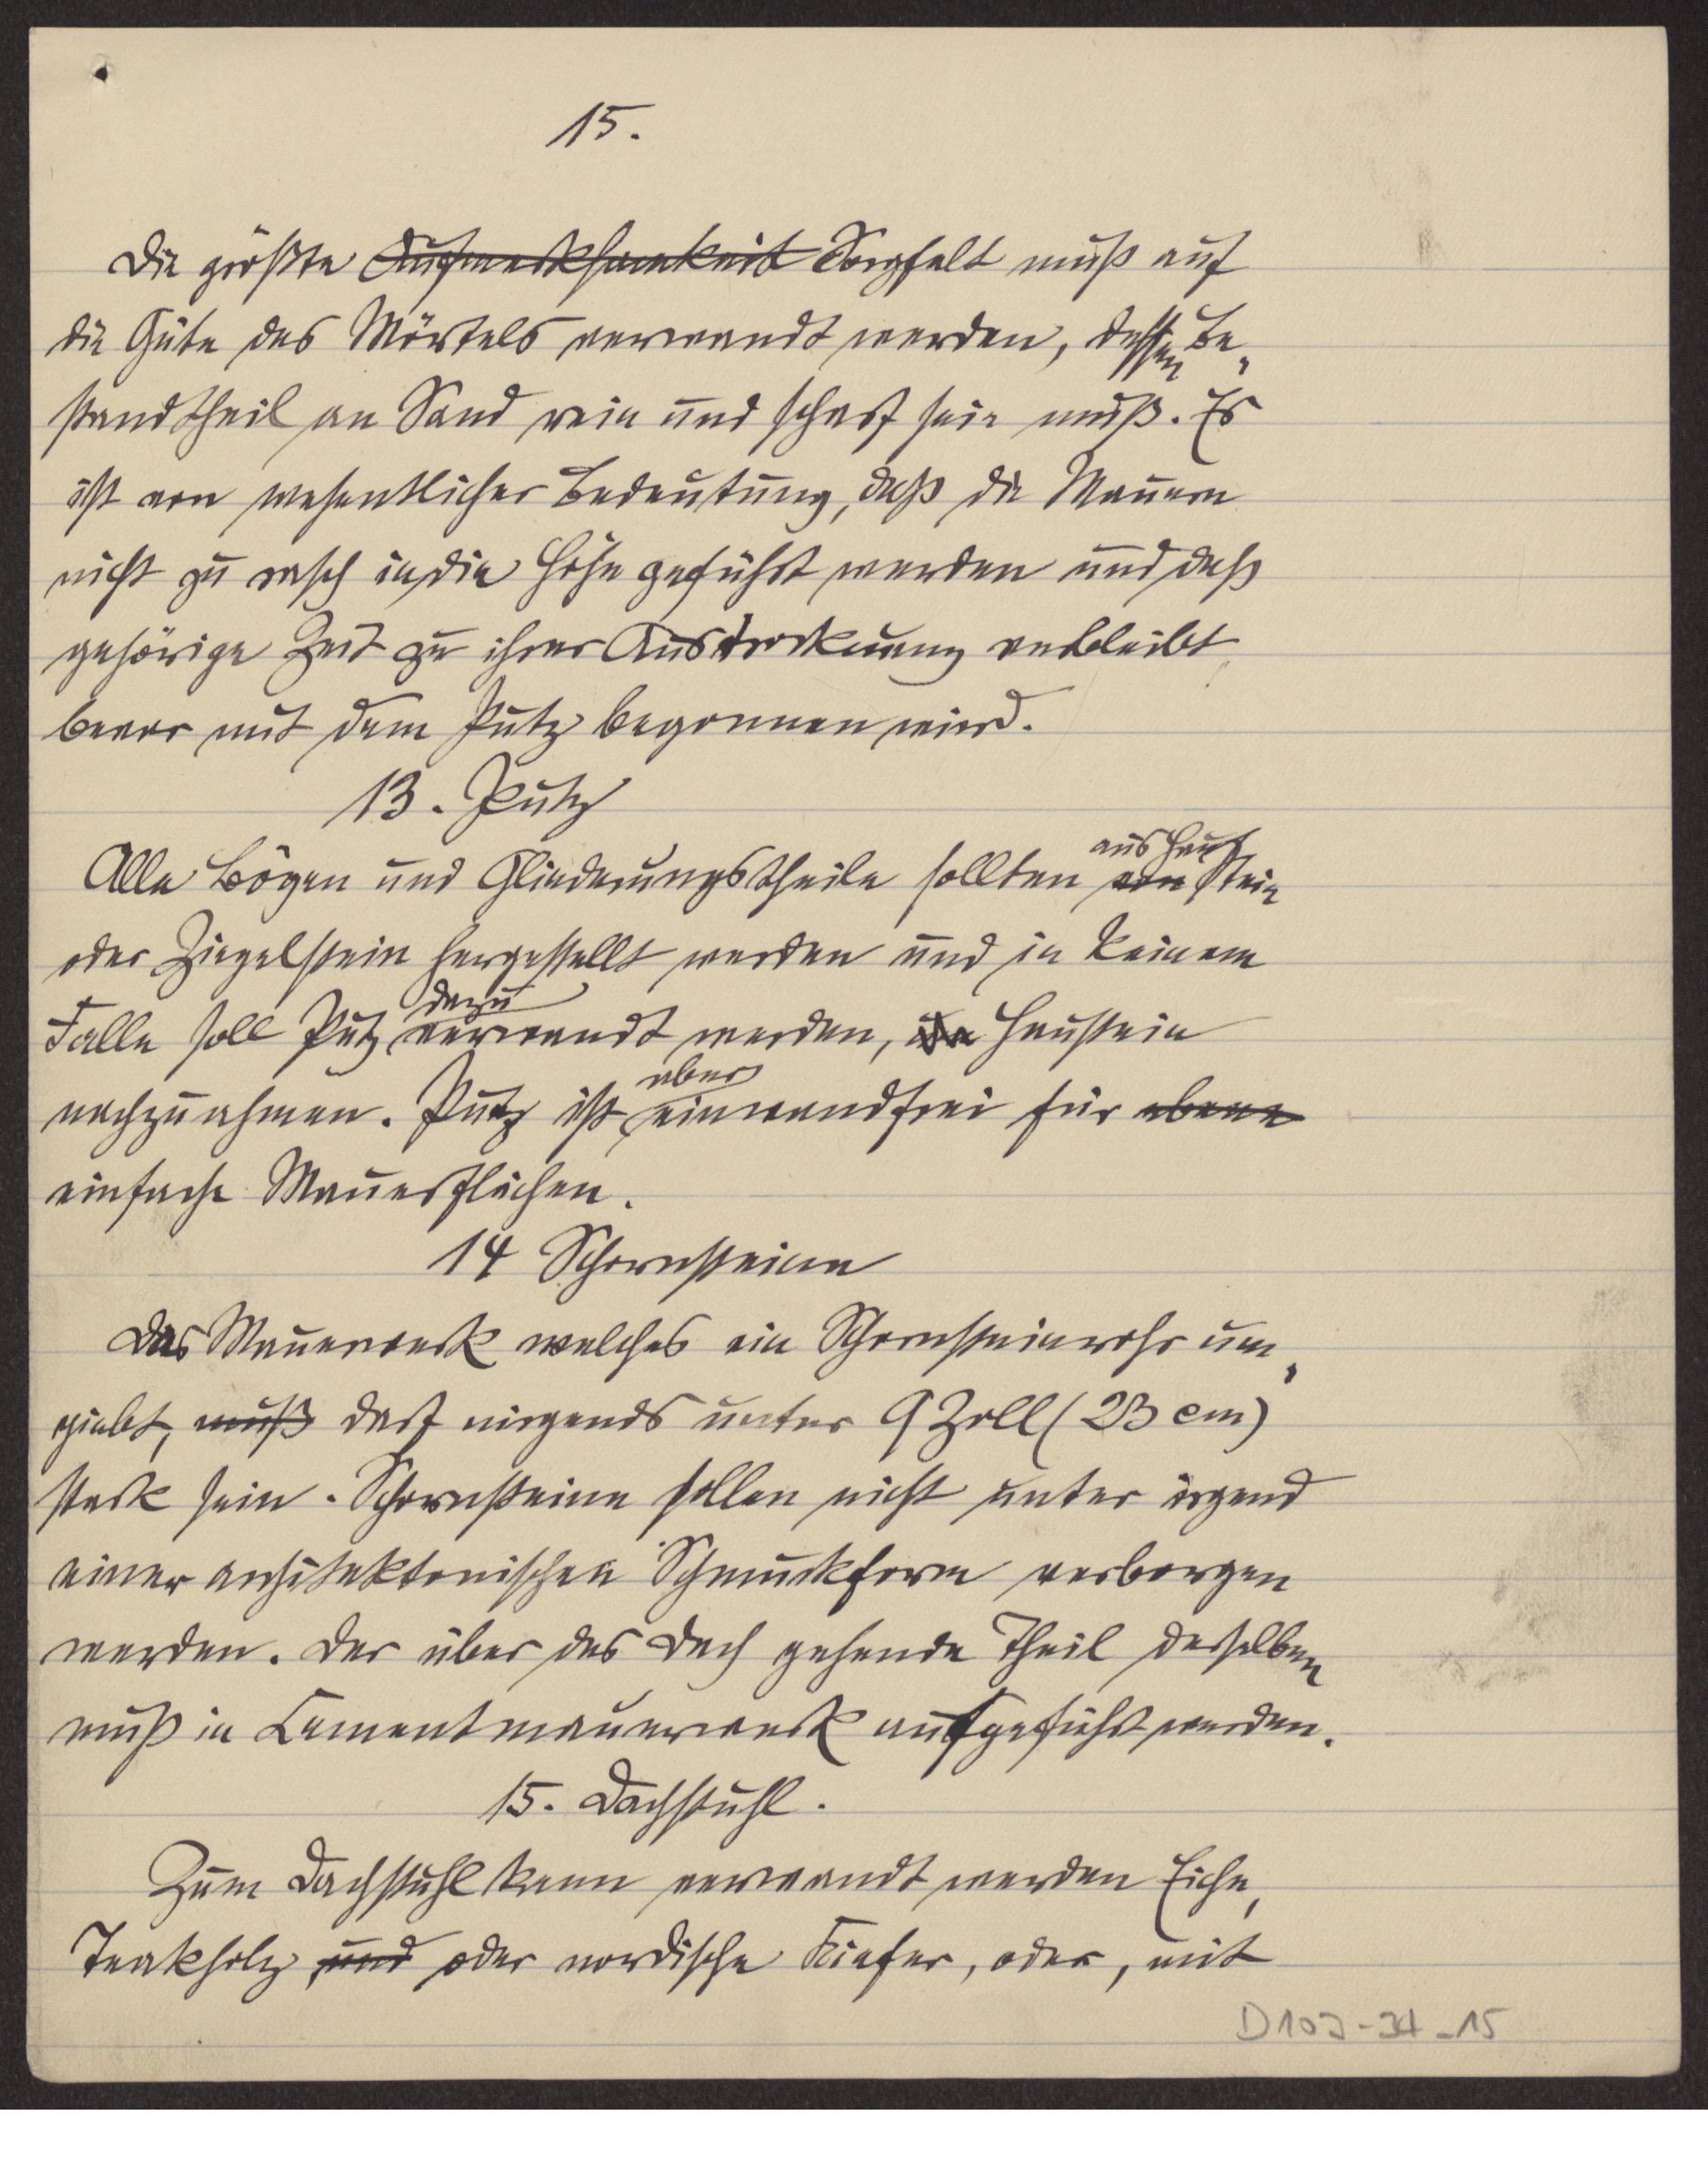 15.
Die größte ~~Aufmerksamkeit~~ Sorgfalt muß auf
die Güte des Mörtels verwandt werden, dessen Be„
standtheil an Sand rein und scharf sein muß. Es
ist von wesentlicher Bedeutung, daß die Mauern
nicht zu rasch in die Höhe geführt werden und daß
gehörige Zeit zu ihrer Austrocknung verbleibt,
bevor mit dem Putz begonnen wird.
13. Putz
Alle Bögen und Gliederungstheile sollten ~~von~~ aus Haustein
oder Ziegelstein hergestellt werden und in keinem
Falle soll Putz dazu verwandt werden, ~~um~~ Haustein
nachzuahmen. Putz ist aber einwandfrei für ~~ebene~~
einfache Mauerflächen.
14 Schornsteine
Das Mauerwerk welches ein Schornsteinrohr um„
giebt, ~~muß~~ darf nirgends unter 9 Zoll (23 cm)
stark sein. Schornsteine sollen nicht unter irgend
einer architektonischen Schmuckform verborgen
werden. Der über das Dach gehende Theil derselben
muß in Cementmauerwerk aufgeführt werden.
15. Dachstuhl.
Zum Dachstuhl kann verwandt werden Eiche,
Teakholz ~~und~~ oder nordische Kiefer, oder, mit
D102-34-15